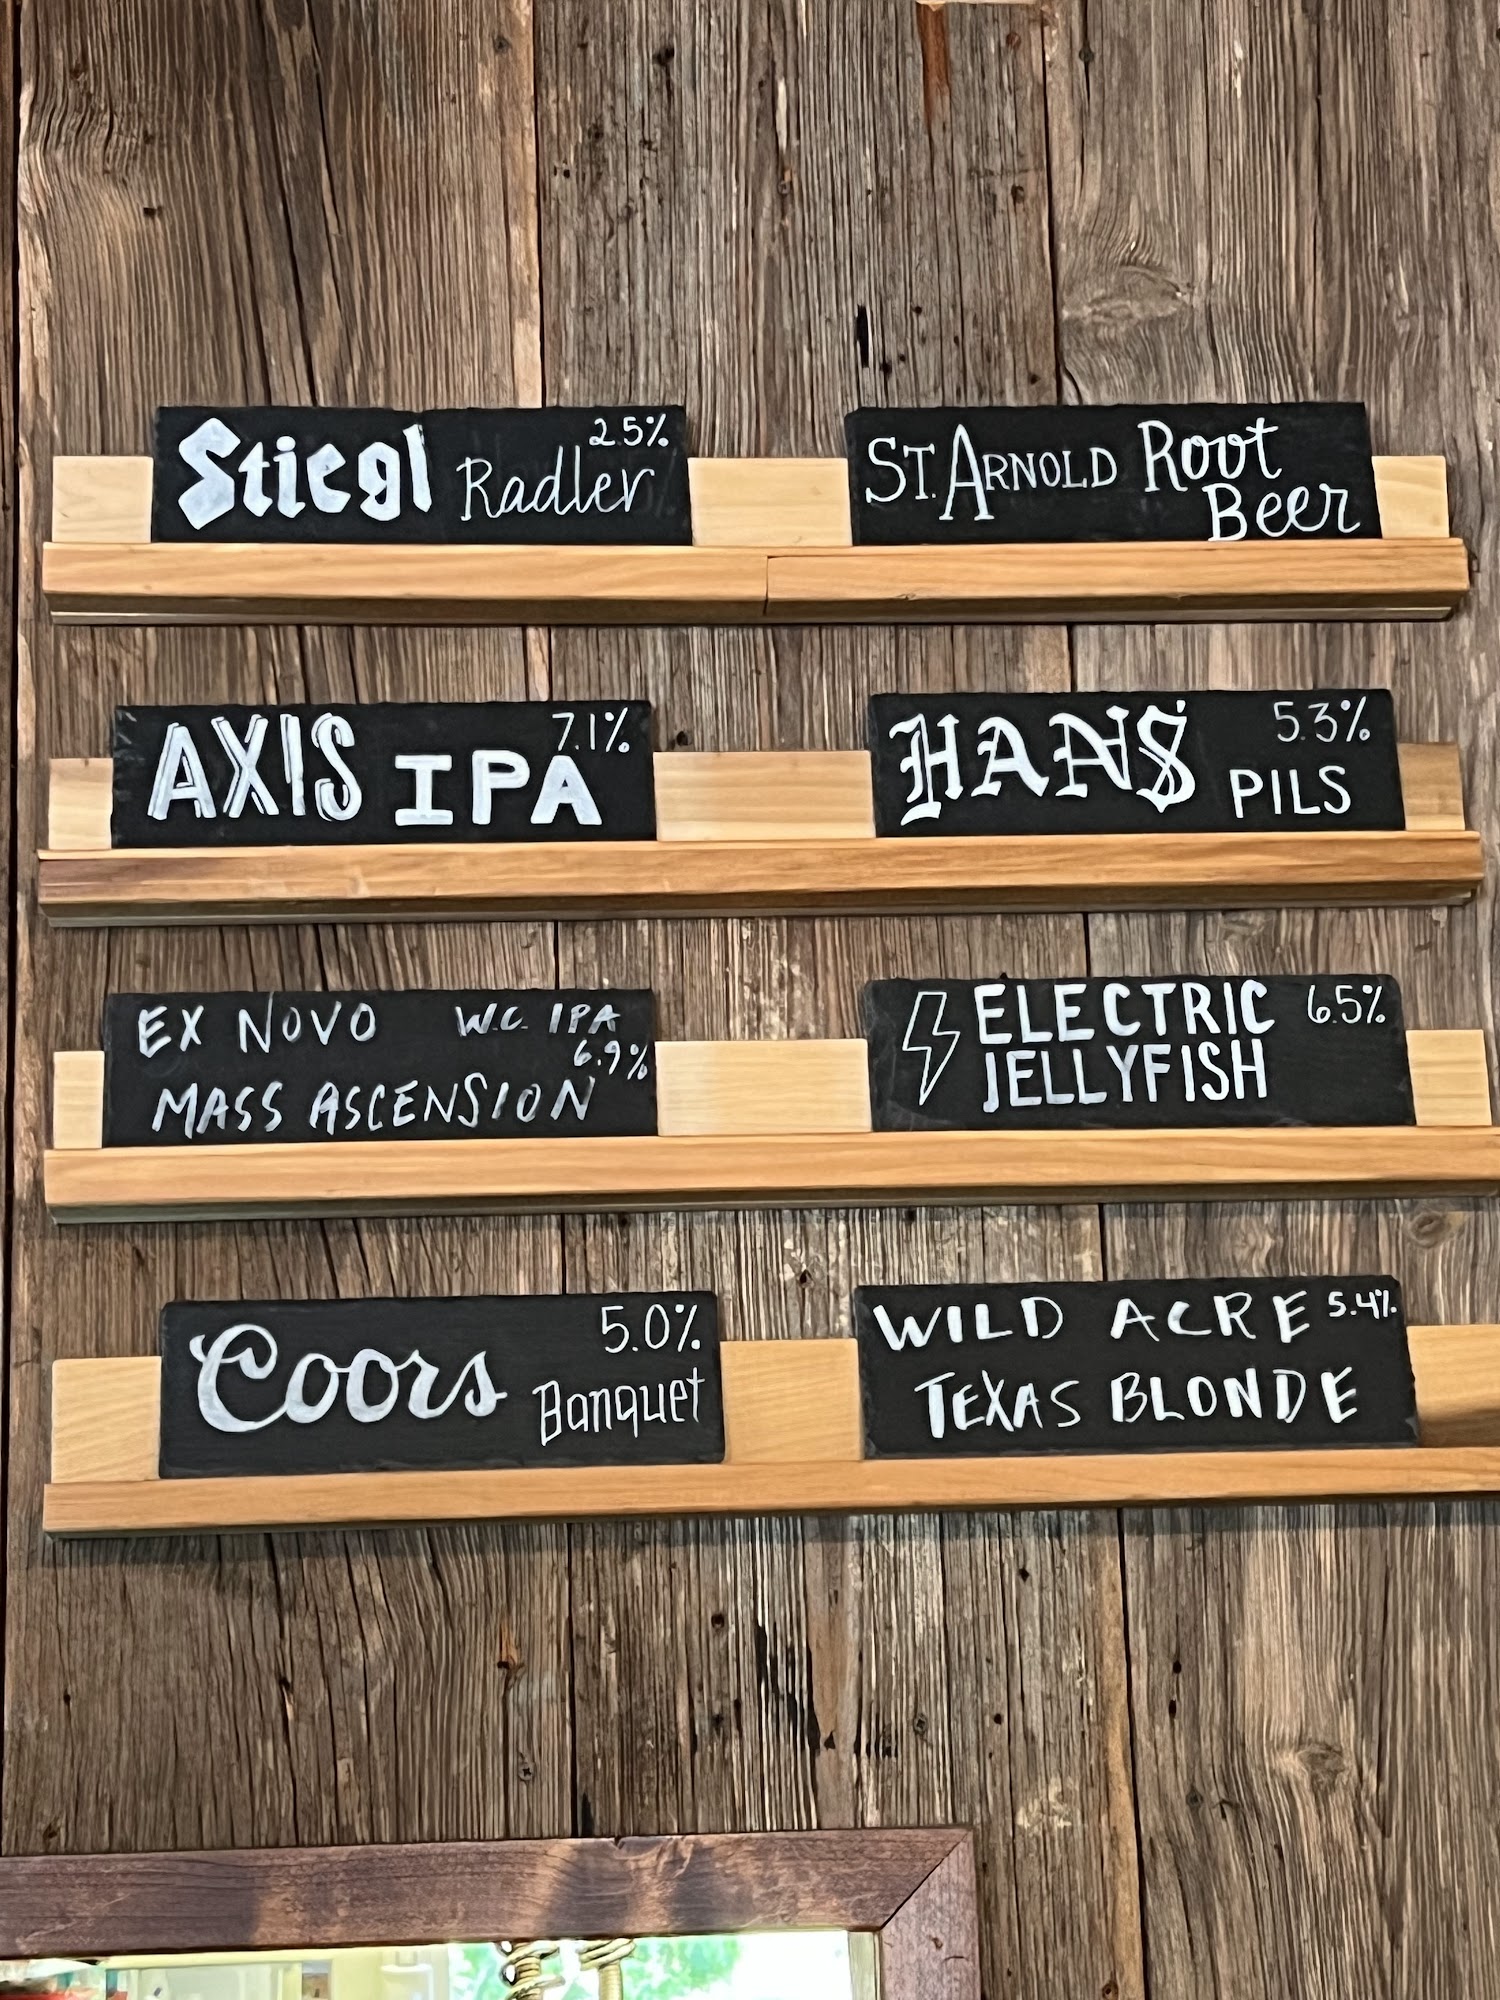 Stiegl Radler 2.5%
ST. ARNOLD Root
Beer
AXIS IPA 7.1%
HANS PILS 5.3%
EX NOVO W.C. IPA
6.9%
MASS ASCENSION
ELECTRIC 6.5%
JELLYFISH
Coors 5.0%
Banquet
WILD ACRE 5.4%
TEXAS BLONDE